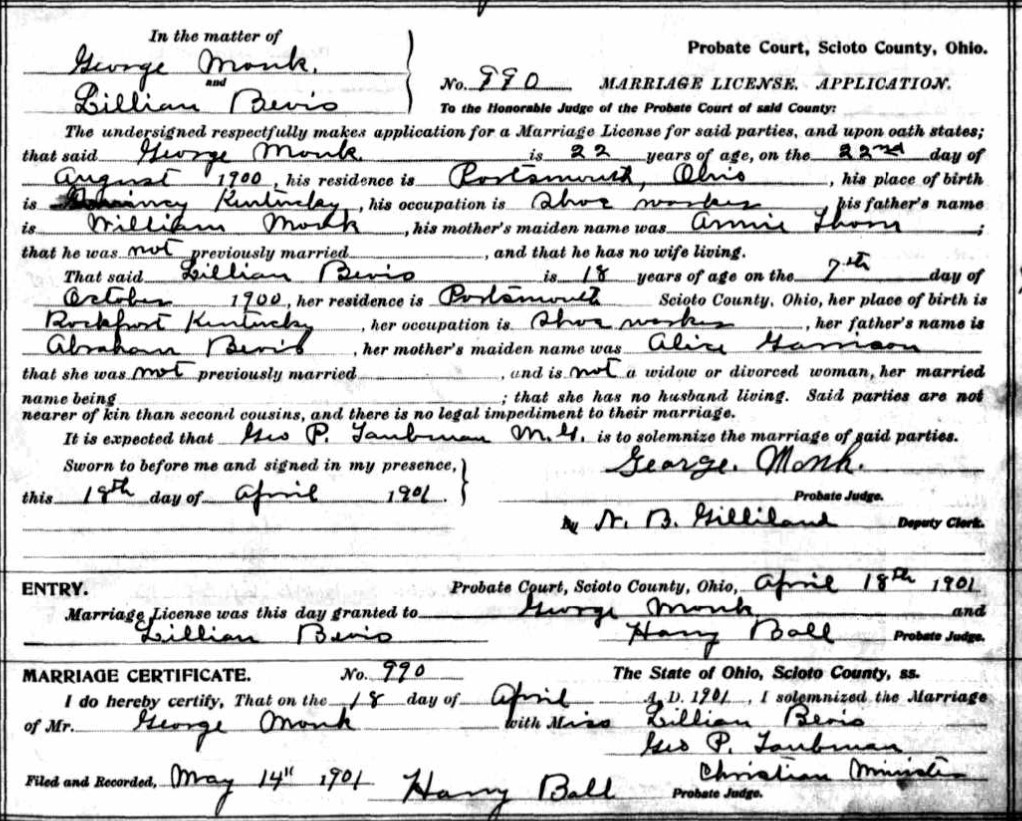 In the matter of
George Monk.
and
Lillian Bevis
Probate Court, Scioto County, Ohio.
No. 990 MARRIAGE LICENSE. APPLICATION.
To the Honorable Judge of the Probate Court of said County:
The undersigned respectfully makes application for a Marriage License for said parties, and upon oath states;
that said George Monk. is 22 years of age, on the 22nd day of
August 1900, his residence is Portsmouth, Ohio, his place of birth
is Kentucky, his occupation is Shoe worker his father's name
is William Monk, his mother's maiden name was Annie Thorn;
that he was not previously married, and that he has no wife living.
That said Lillian Bevis is 18 years of age on the 7th day of
October 1900, her residence is Portsmouth Scioto County, Ohio, her place of birth is
Rockport Kentucky, her occupation is Shoe worker, her father's name is
Abraham Bevis, her mother's maiden name was Alice Garrison
that she was not previously married, and is not a widow or divorced woman, her married
name being ; that she has no husband living. Said parties are not
nearer of kin than second cousins, and there is no legal impediment to their marriage.
It is expected that Geo P. Taubman M.G. is to solemnize the marriage of said parties.
Sworn to before me and signed in my presence, George. Monk.
this 18th day of April 1901. Probate Judge.
By N. B. Gilliland Deputy Clerk.
ENTRY. Probate Court, Scioto County, Ohio, April 18th 1901
Marriage License was this day granted to George Monk and
Lillian Bevis Harry Ball Probate Judge.
MARRIAGE CERTIFICATE. No. 990 The State of Ohio, Scioto County, ss.
I do hereby certify, That on the 18 day of April A. D. 1901, I solemnized the Marriage
of Mr. George Monk with Miss Lillian Bevis
Geo P. Taubman
Christian Minister
Filed and Recorded, May 14" 1901 Harry Ball Probate Judge.